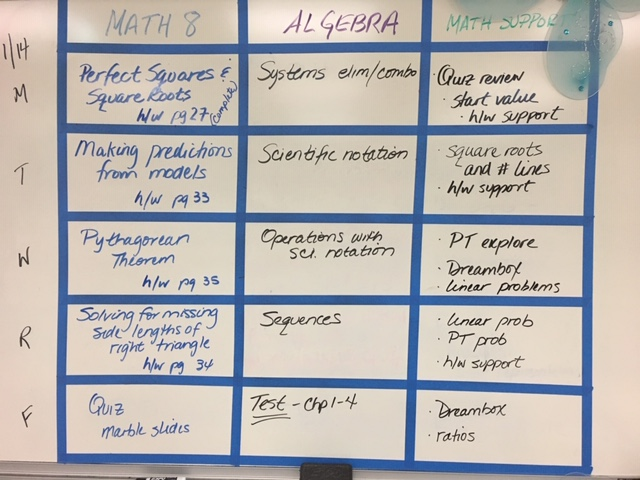 MATH 8 ALGEBRA MATH SUPPORT
1/14
M
Perfect Squares &
Square Roots
h/w pg 27 (complete)
Systems elim/combo
· Quiz review
· start value
· h/w support
T
Making predictions
from models
h/w pg 33
Scientific notation
· square roots
and # lines
· h/w support
W
Pythagorean
Theorem
h/w pg 35
Operations with
sci. notation
· PT explore
· Dreambox
· linear problems
R
Solving for missing
side lengths of
right triangle
h/w pg 34
Sequences
· linear prob
· PT prob
· h/w support
F
Quiz
marble slides
Test - Chp 1-4
· Dreambox
· ratios